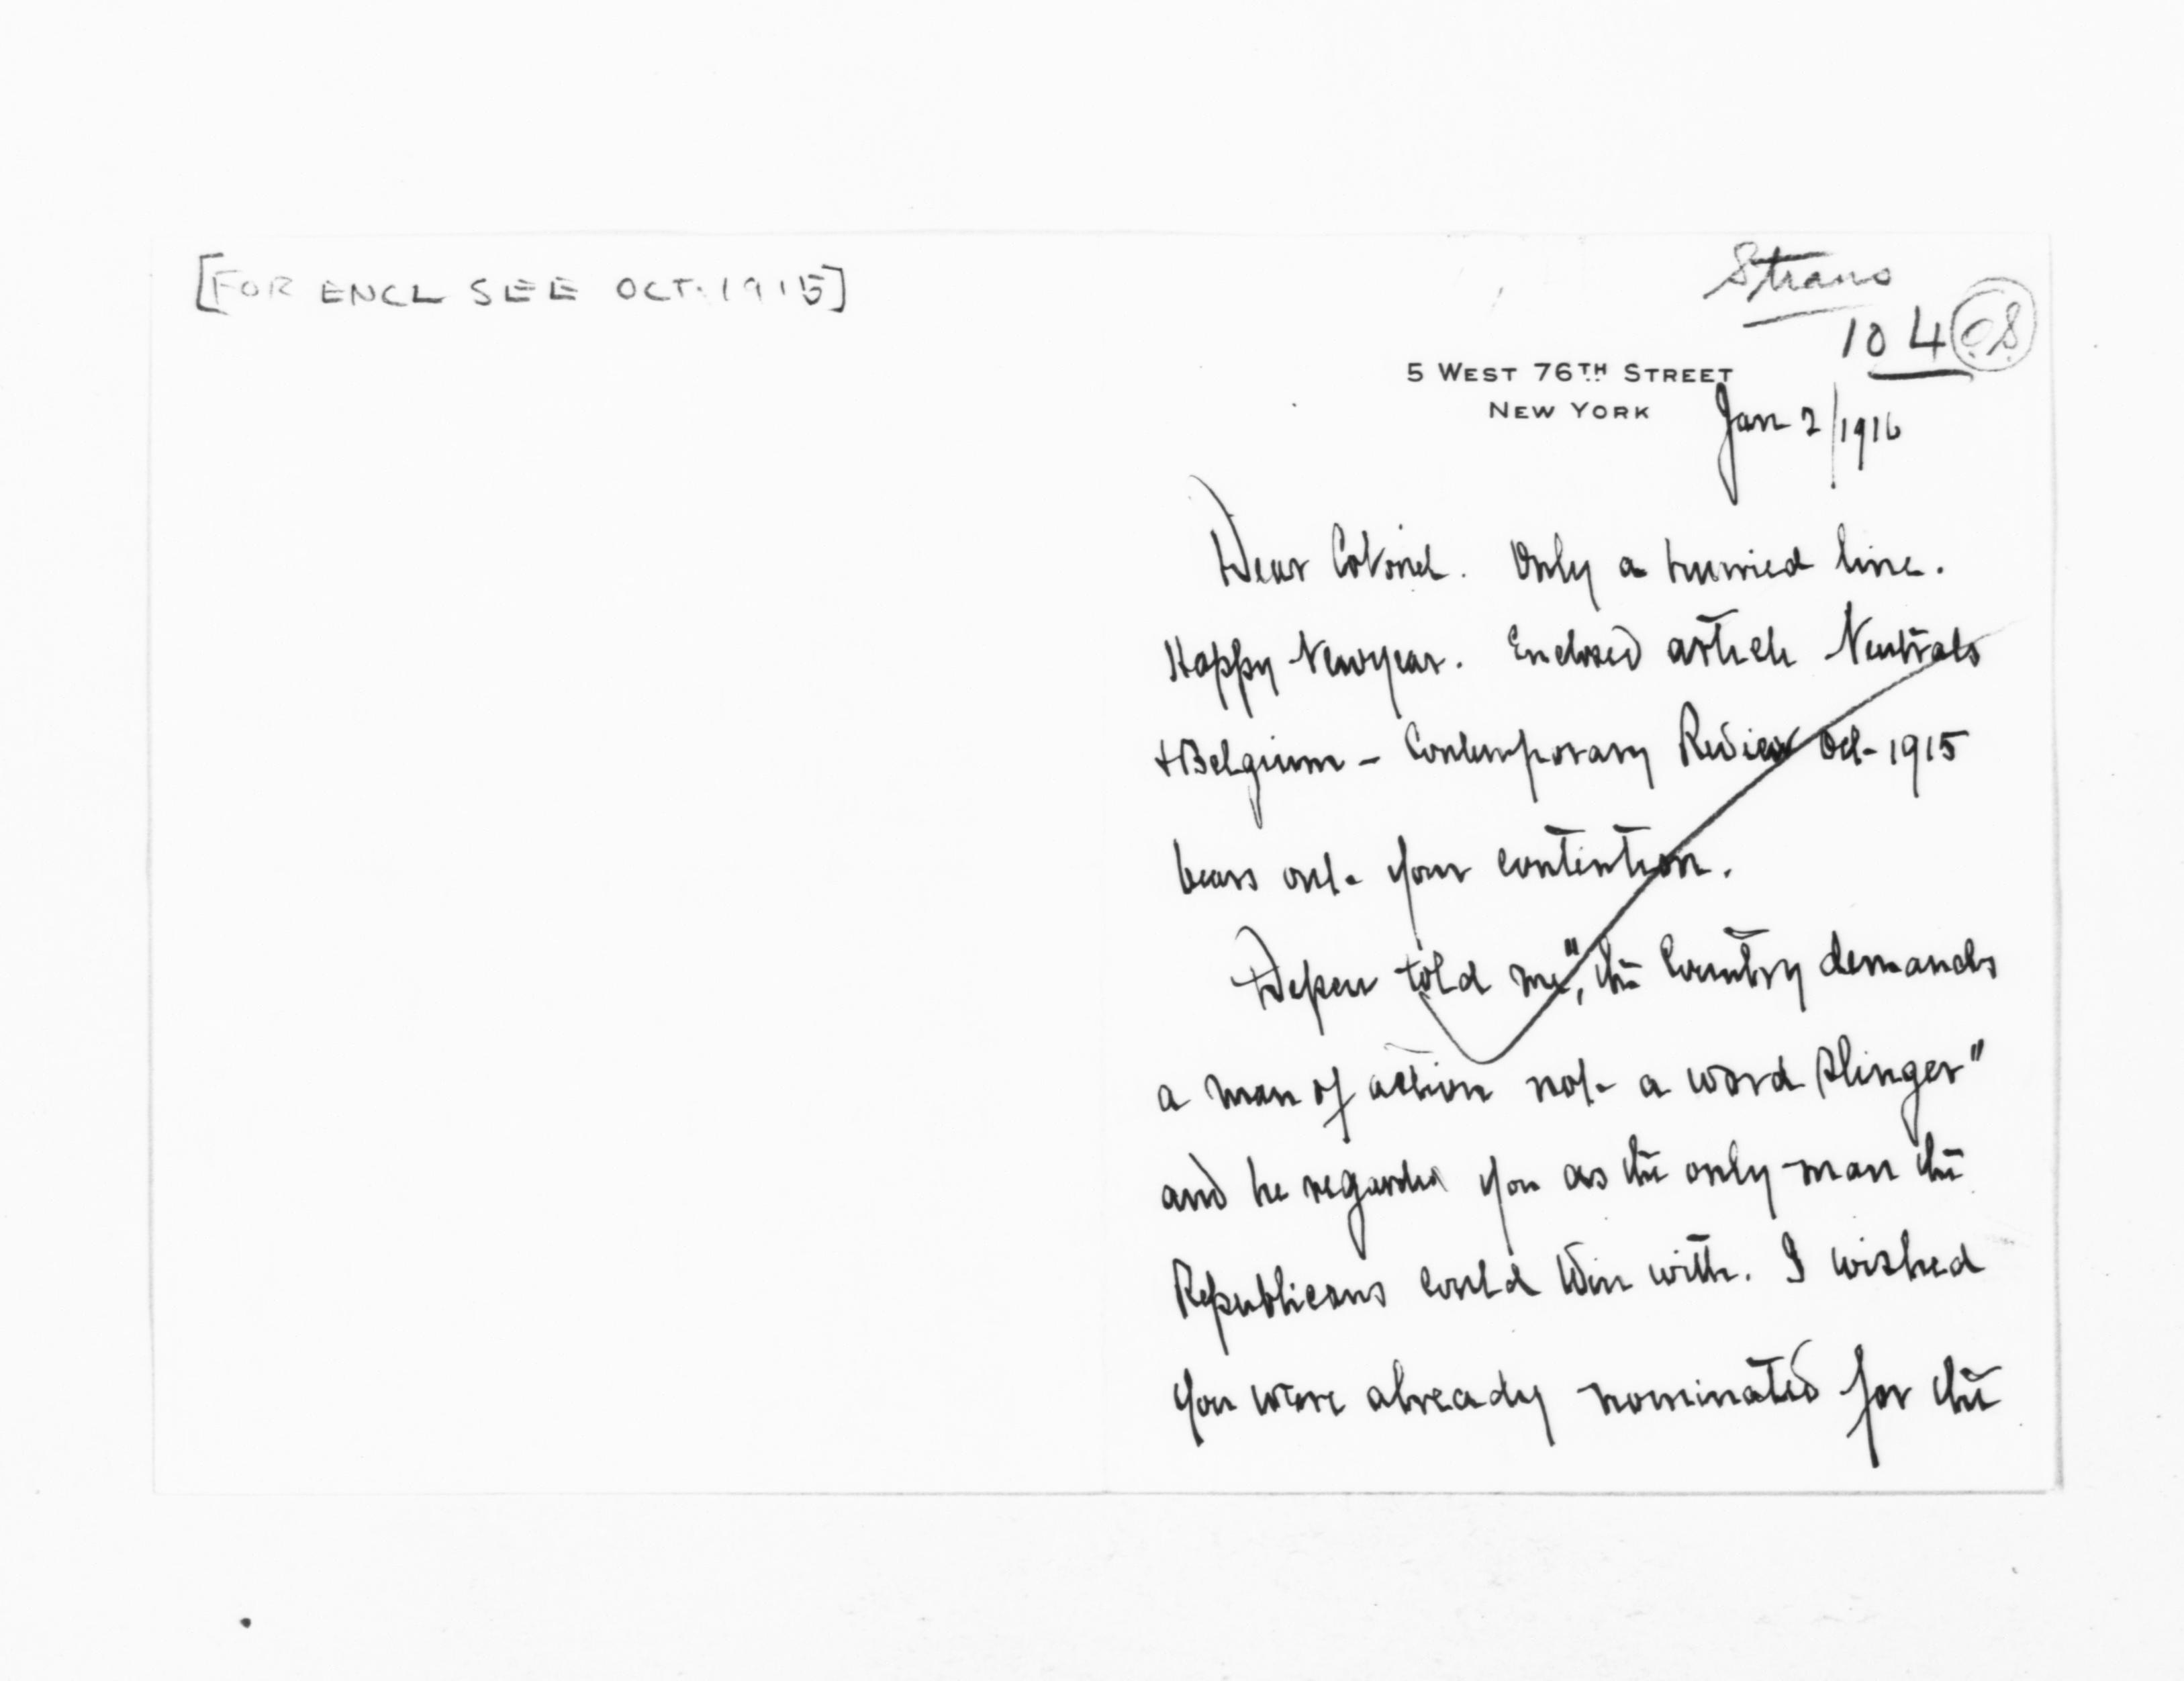 [FOR ENCL SEE OCT. 1915]
Straus
104 O.S.
5 WEST 76TH STREET
NEW YORK
Jan 2/1916
Dear Colonel. Only a hurried line.
Happy Newyear. Enclosed article Neutrals
+ Belgium - Contemporary Review Oct- 1915
bears out your contention.
Depew told me, "the Country demands
a man of action not a word slinger"
and he regarded you as the only man the
Republicans could win with. I wished
you were already nominated for the